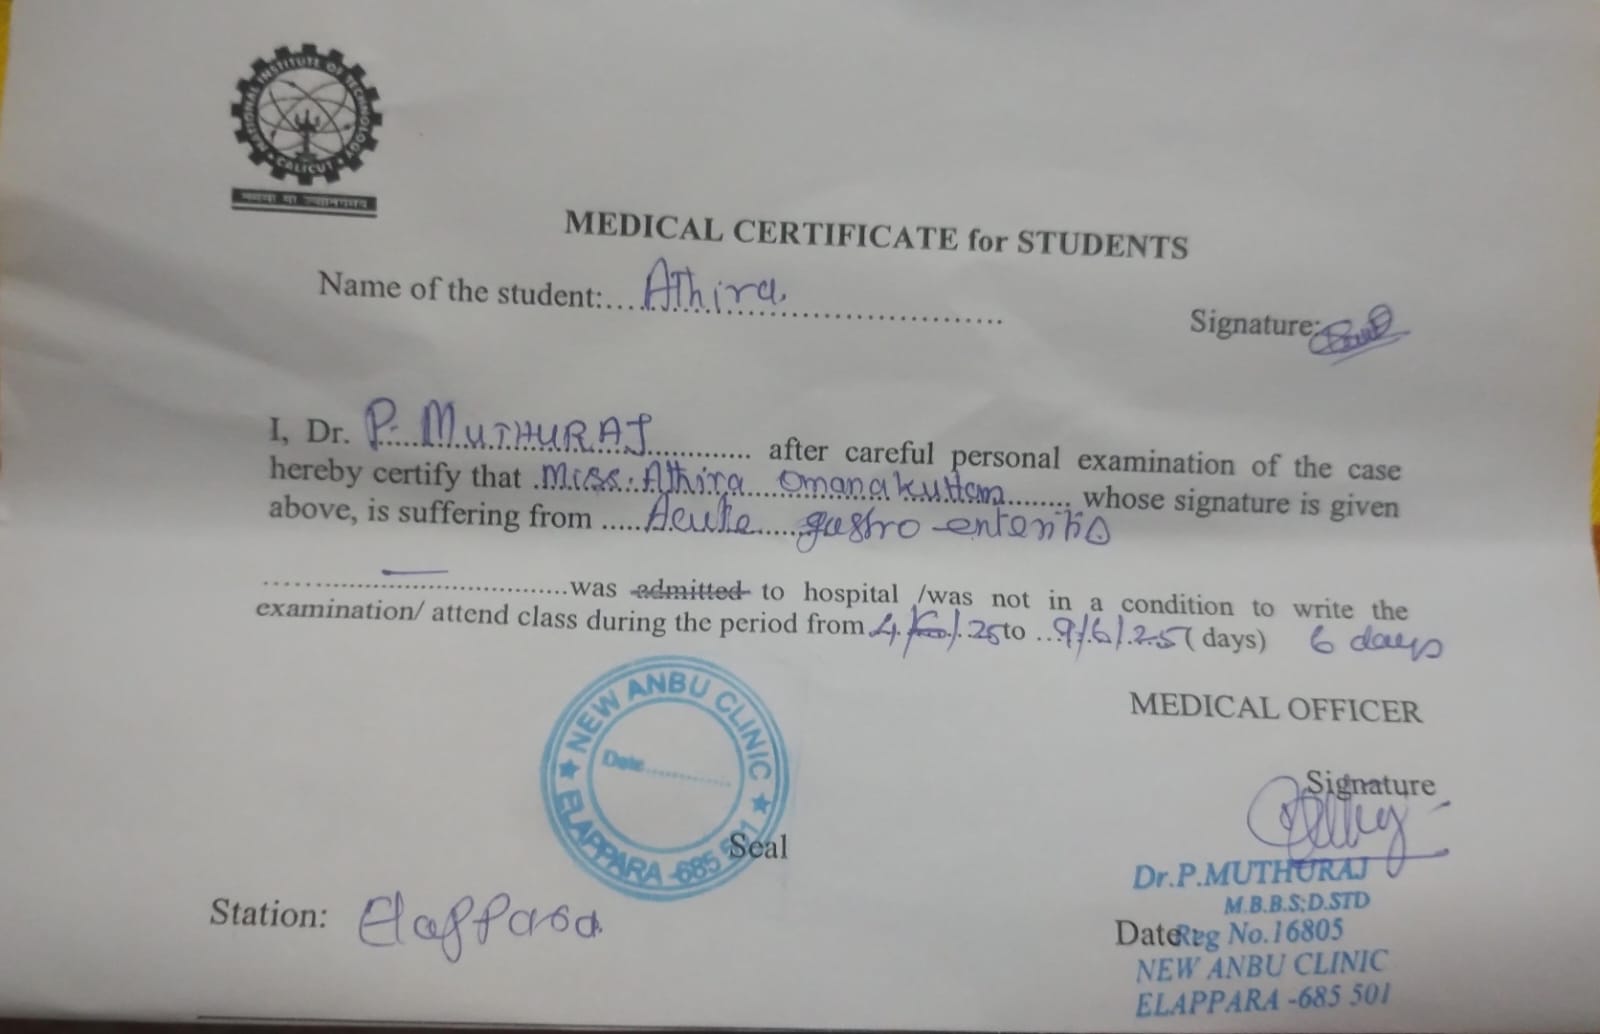 NATIONAL INSTITUTE OF TECHNOLOGY
CALICUT
MEDICAL CERTIFICATE for STUDENTS
Name of the student:....Athira..............................
Signature:
I, Dr. P. MUTHURAJ............. after careful personal examination of the case
hereby certify that .Miss. Athira Omanakuttan........, whose signature is given
above, is suffering from .....Acute gastro enteritis
..................................was admitted to hospital /was not in a condition to write the
examination/ attend class during the period from 4/6/25 to ..9/6/25 (days) 6 days
NEW ANBU CLINIC
Date..............
ELAPPARA -685 501
Seal
MEDICAL OFFICER
Signature
Dr.P.MUTHURAJ
M.B.B.S;D.STD
Date:
Reg No.16805
NEW ANBU CLINIC
ELAPPARA -685 501
Station: Elappara